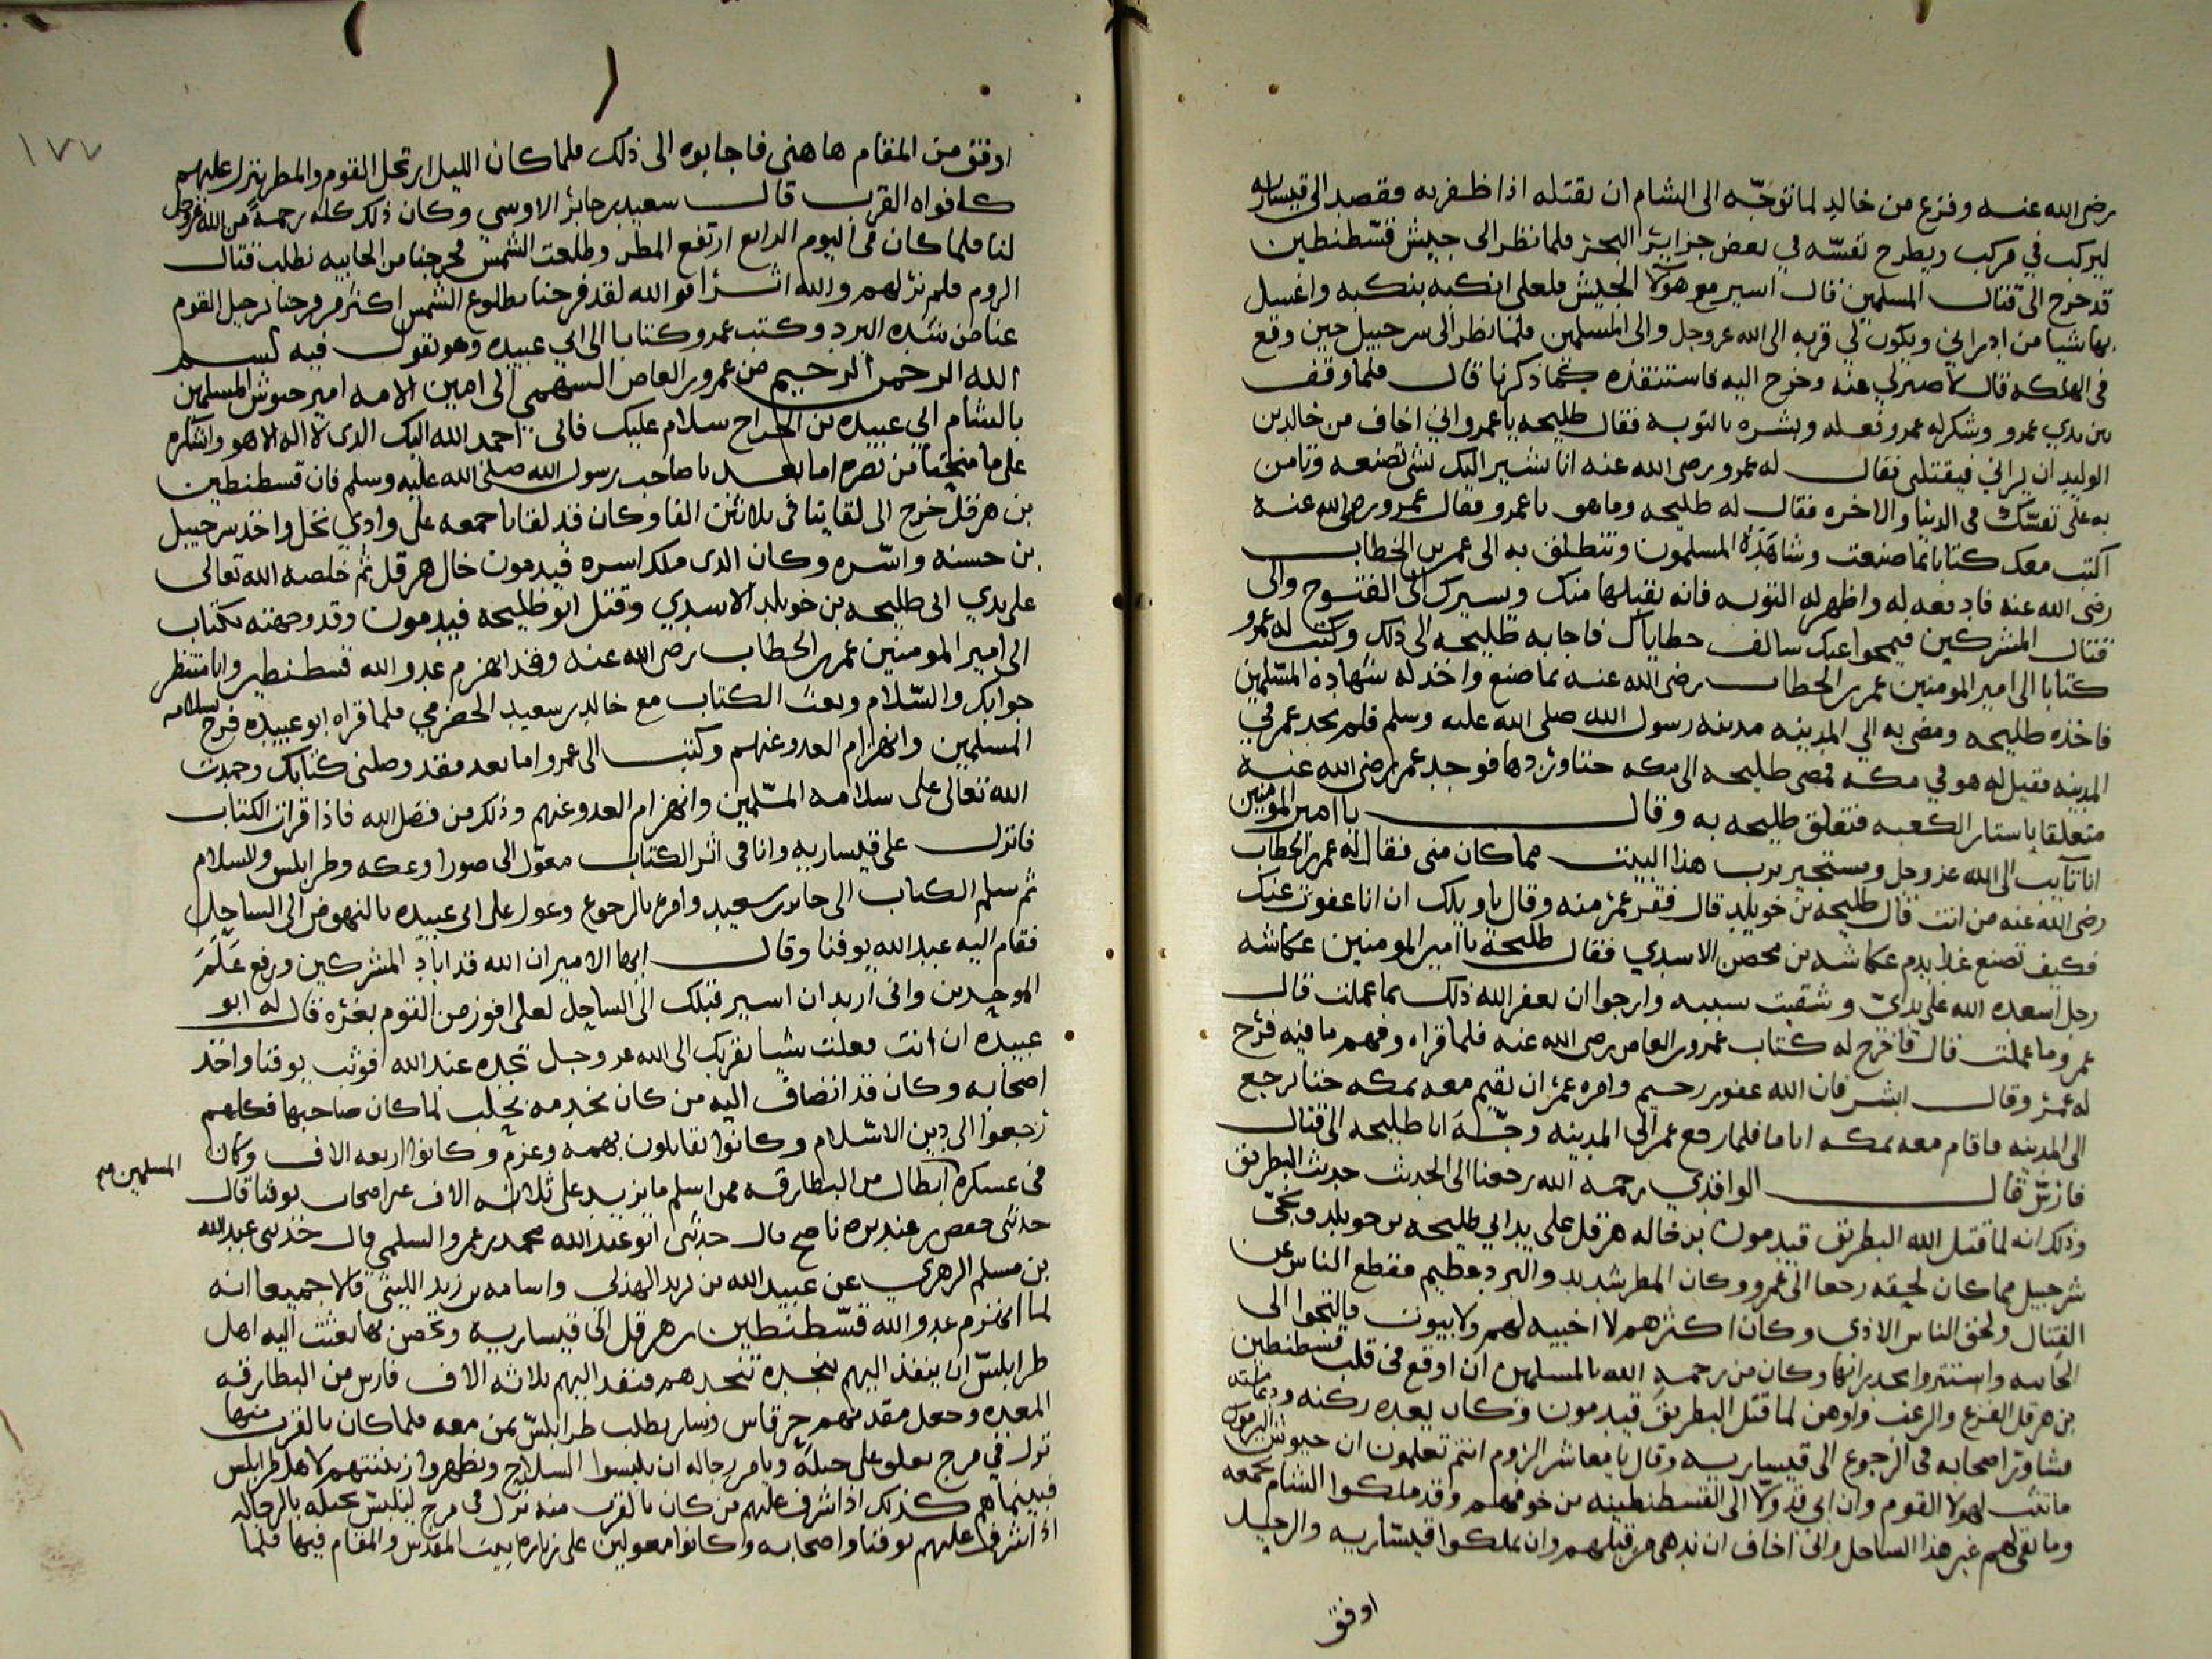 رضى الله عنه وفزع من خالد لما توجه الى الشام ان يقتله اذا ظفر به فقصد الى قيساريه
ليركب في مركب ويطرح نفسه في بعض جزاير البحر فلما نظر الى جيش قسطنطين
قد خرج الى قتال المسلمين قال اسير مع هولا الجيش فلعلى انكبه بنكبه واغسل
بها شيا من ادراني ويكون لي قربه الى الله عز وجل والى المسلمين فلما نظر الى سرحبيل حين وقع
فى الهلكه قال لا صبر لي عنه وخرج اليه فاستنقذه كما ذكرنا قال فلما وقف
بين يدي عمرو وشكر له عمرو فعله وبشره بالتوبه فقال طليحه يا عمرو اني اخاف من خالد بن
الوليد ان يراني فيقتلنى فقال له عمرو رضى الله عنه انا اشير اليك بشى تصنعه وتامن
به على نفسك فى الدنيا والاخره فقال له طليحه وما هو يا عمرو فقال عمرو رضى الله عنه
اكتب معك كتابا بما صنعت وشاهده المسلمون وتنطلق به الى عمر بن الخطاب
رضى الله عنه فادفعه له واظهر له التوبه فانه يقبلها منك ويسيرك الى الفتوح والى
قتال المشركين فيمحوا عنك سالف خطاياك فاجابه طليحه الى ذلك وكتب له عمرو
كتابا الى امير المومنين عمر بن الخطاب رضى الله عنه بما صنع واخذ له شهاده المسلمين
فاخذه طليحه ومضى به الى المدينه مدينه رسول الله صلى الله عليه وسلم فلم يجد عمر في
المدينه فقيل له هو في مكه فمضى طليحه الى مكه حتا وردها فوجد عمر رضى الله عنه
متعلقا باستار الكعبه فتعلق طليحه به وقال يا امير المومنين
انا تايب الى الله عز وجل ومستجير برب هذا البيت مما كان منى فقال له عمر بن الخطاب
رضى الله عنه من انت قال طليحه بن خويلد قال ففر عمر منه وقال يا ويلك ان انا عفوت عنك
فكيف تصنع غدا بدم عكاشه بن محصن الاسدي فقال طليحه يا امير المومنين عكاشه
رجل اسعده الله على يداي وشقيت بسببه وارجوا ان يغفر الله ذلك بما عملت قال
عمر وما عملت قال فاخرج له كتاب عمرو بن العاص رضى الله عنه فلما قراه وفهم ما فيه فرح
له عمر وقال ابشر فان الله غفور رحيم وامره عمر ان يقيم معه بمكه حتا يرجع
الى المدينه فاقام معه بمكه اياما فلما رجع عمر الى المدينه وجه ابا طليحه الى قتال
فارس قال الواقدي رحمه الله رجعنا الى الحديث حديث البطريق
وذلك انه لما قتل الله البطريق قيدمون بن خاله هرقل على يد ابي طليحه بن خويلد ونجى
شرحبيل مما كان لحيقه رجعا الى عمرو وكان المطر شديد والبرد عظيم فقطع الناس عن
القتال ولحق الناس الاذى وكان اكثرهم لا اخبيه لهم ولا بيوت فالتجوا الى
الجابيه واستتروا بجدرانها وكان من رحمه الله بالمسلمين ان اوقع فى قلب قسطنطين
بن هرقل الفزع والرعب واوهن لما قتل البطريق قيدمون وكان يعده ركنه ودعامته
فشاور اصحابه فى الرجوع الى قيساريه وقال يا معاشر الروم انتم تعلمون ان جيوش اليرموك
ما ثبت لهولا القوم وان ابى قد ولا الى القسطنطينيه من خوفهم وقد ملكوا الشام بجمعه
وما بقى لهم غير هذا الساحل وانى اخاف ان ندهى من قبلهم وان يملكوا قيساريه والرحيل
اوفق
١٧٧
اوفق من المقام هاهنى فاجابوه الى ذلك فلما كان الليل ارتحل القوم والمطر ينزل عليهم
كافواه القرب قال سعيد بن جابر الاوسي وكان ذلك كله رحمة من الله عز وجل
لنا فلما كان فى اليوم الرابع ارتفع المطر وطلعت الشمس فخرجنا من الجابيه نطلب قتال
الروم فلم نر لهم والله اثرا فو الله لقد فرحنا بطلوع الشمس اكثر من فرحنا برحيل القوم
عنا من شده البرد وكتب عمرو كتابا الى ابي عبيده وهو يقول فيه بسم
الله الرحمن الرحيم من عمرو بن العاص السهمي الى امين الامه امير جيوش المسلمين
بالشام ابي عبيده بن الجراح سلام عليك فانى احمد الله اليك الذى لا اله الا هو واشكره
على ما منحنا من نصره اما بعد يا صاحب رسول الله صلى الله عليه وسلم فان قسطنطين
بن هرقل خرج الى لقاينا فى ثلاثين الفا وكان قد لقانا بجمعه على وادي نخل واخذ سرحبيل
بن حسنه واسره وكان الذى ملك اسره قيدمون خال هرقل ثم خلصه الله تعالى
على يدي ابى طليحه بن خويلد الاسدي وقتل ابو طليحه قيدمون وقد وجهته بكتاب
الى امير المومنين عمر بن الخطاب رضى الله عنه وقد انهزم عدو الله قسطنطين وانا منتظر
جوابك والسلام وبعث الكتاب مع خالد بن سعيد الحضرمي فلما قراه ابو عبيده فرح بسلامه
المسلمين وانهزام العدو عنهم وكتب الى عمرو اما بعد فقد وصلنى كتابك وحمدت
الله تعالى على سلامه المسلمين وانهزام العدو عنهم وذلك من فضل الله فاذا قرات الكتاب
فانزل على قيساريه وانا فى اثر الكتاب معول الى صورا وعكه وطرابلس والسلام
ثم سلم الكتاب الى جابر بن سعيد وامره بالرجوع وعول على ابى عبيده بالنهوض الى الساحل
فقام اليه عبد الله يوقنا وقال ايها الامير ان الله قد اباد المشركين ورفع علم
الموحدين وانى اريد ان اسير قبلك الى الساحل لعلى افوز من القوم بغره قال له ابو
عبيده ان انت فعلت شيا يقربك الى الله عز وجل تجده عند الله فوثب يوقنا واخذ
اصحابه وكان قد انضاف اليه من كان يخدمه بحلب لما كان صاحبها فكلهم
رجعوا الى دين الاسلام وكانوا يقاتلون بهمه وعزم وكانوا اربعه الاف وكان المسلمين
فى عسكره ابطال من البطارقه ممن اسلم ما يزيد على ثلاثه الاف غير اصحاب يوقنا قال
حدثنى ناصح قال حدثنى ابو عبد الله محمد بن عمرو السلمي قال حدثنى عبد الله
بن مسلم الزهري عن عبيد الله بن يزيد الهذلى واسامه بن زيد الليثى قالا جميعا انه
لما انهزم عدو الله قسطنطين بن هرقل الى قيساريه وتحصن بها بعثت اليه اهل
طرابلس ان ينفذ اليهم بنجده تنجدهم فنفد اليهم ثلاثه الاف فارس من البطارقه
المعده وجعل مقدمهم جرفاس وسار يطلب طرابلس بمن معه فلما كان بالقرب منها
نزل في مرج يعلق على خيله ويامر رجاله ان يلبسوا السلاح ويظهروا زينتهم لاهل طرابلس
فبينما هم كذلك اذ اشرف عليهم من كان بالقرب منه نزل فى مرج
اذ اشرف عليهم يوقنا واصحابه وكانوا معولين على زياره بيت المقدس والمقام فيها فلما